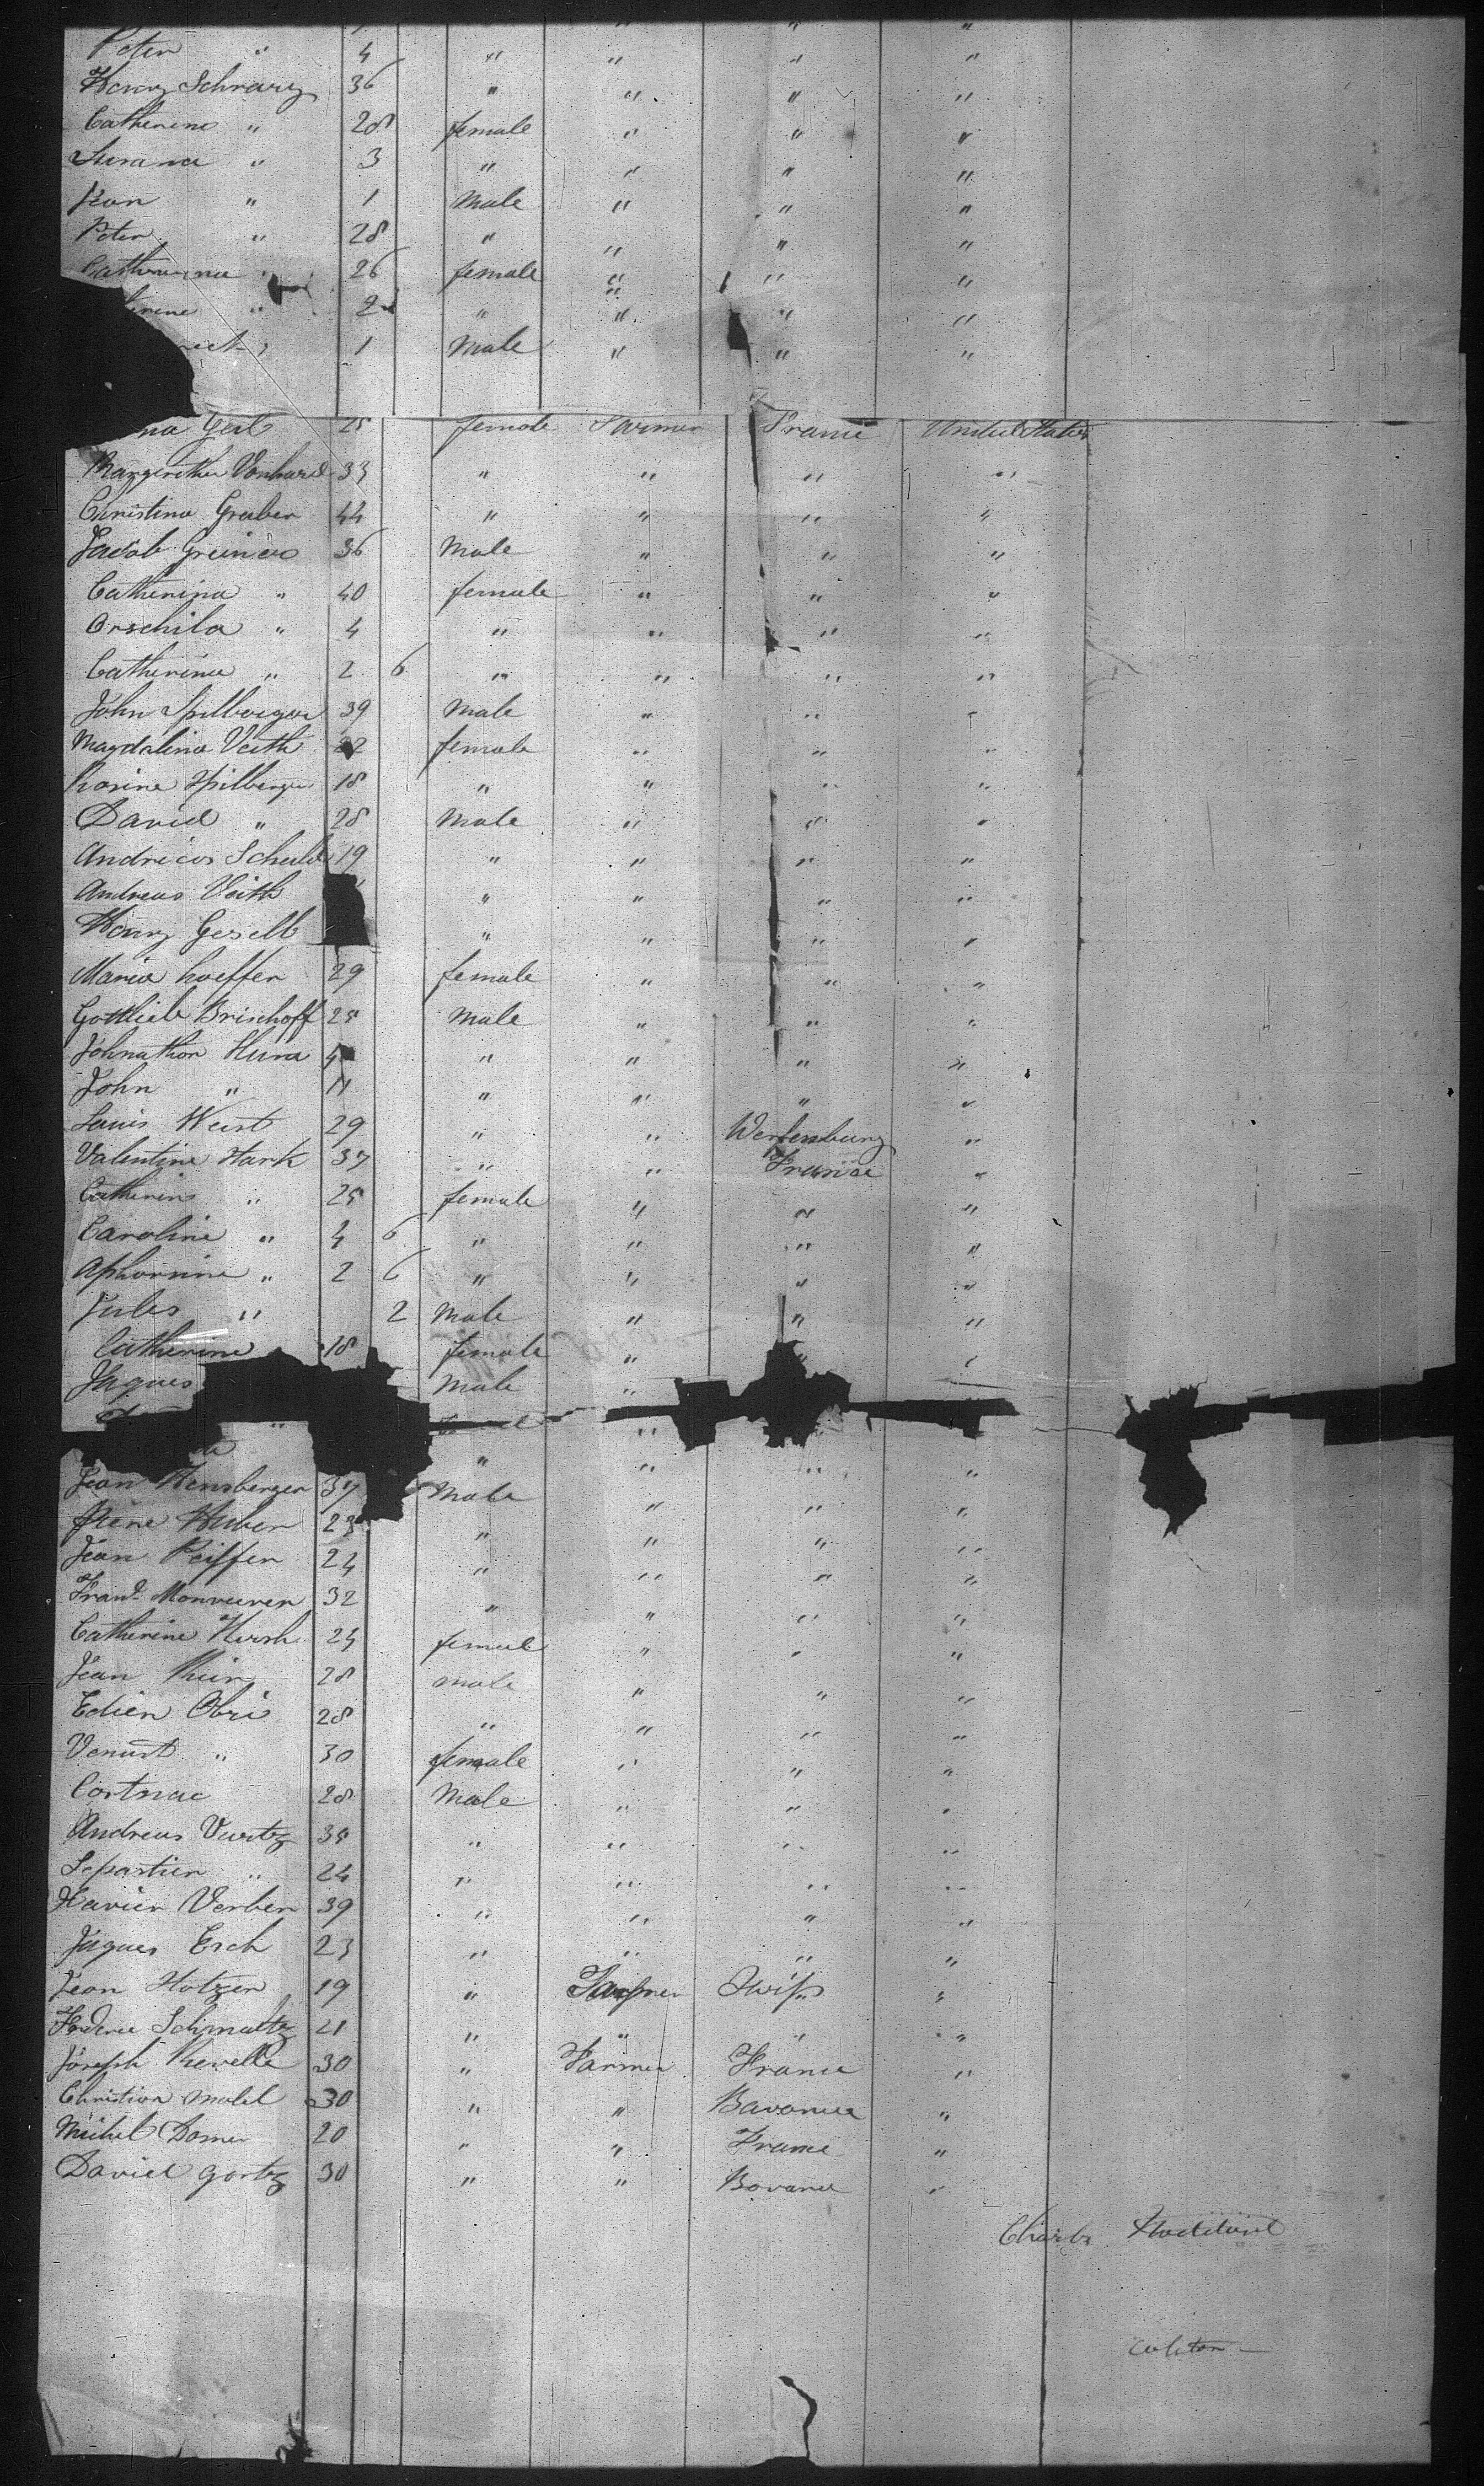 Peter " 4 " " " "
Henry Schwarz 36 " " " "
Catherine " 28 female " " "
Susana " 3 " " " "
Jean " 1 Male " " "
Peter " 28 " " " "
Catherina " 26 female " " "
" 2 " " " "
1 Male " " "
Gest 25 female Farmer France United States
Margeretha Vonhard 33 " " " "
Christina Gruber 44 " " " "
Jacob Greiners 36 Male " " "
Catherina " 40 female " " "
Orschila " 4 " " " "
Catherina " 2 6 " " " "
John Spilberger 39 Male " " "
Magdalina Veith 22 female " " "
Rosine Spilberger 18 " " " "
David " 28 Male " " "
Andricos Schuld 19 " " " "
Andreas Veith " " " "
Henry Gesell " " " "
Maria hoeffer 29 female " " "
Gottlieb Brishoff 25 Male " " "
Johnathon Huna 4 " " " "
John " 11 " " " "
Louis Weist 29 " " Wertenburg "
Valentine Hark 37 " " France "
Catherine " 25 female " " "
Caroline " 4 6 " " " "
Aphonnine " 2 6 " " " "
Jules " 2 Male " " "
Catherine 18 female " " "
Jaques Male " "
" "
" " " "
Jean Hensberger 37 Male " " "
Piene Huber 23 " " " "
Jean Peiffer 24 " " " "
Frans. 32 " " " "
Catherine Hirsh 24 female " " "
Jean 28 male " " "
Edien Obri 28 " " " "
Venust " 30 female " " "
Cortnac 28 Male " " "
Andreas Vurtz 35 " " " "
Sepastien " 24 " " " "
Xavier Verber 39 " " " "
Jaques Esch 23 " " " "
Jean Hotzer 19 " Swiss "
Schmaltz 21 " " " "
Joseph Revelle 30 " Farmer France "
Christian Malel 30 " " Bavaria "
Michel Domer 20 " " France "
David Gortz 30 " " Bovaria "
Charles Stoddard